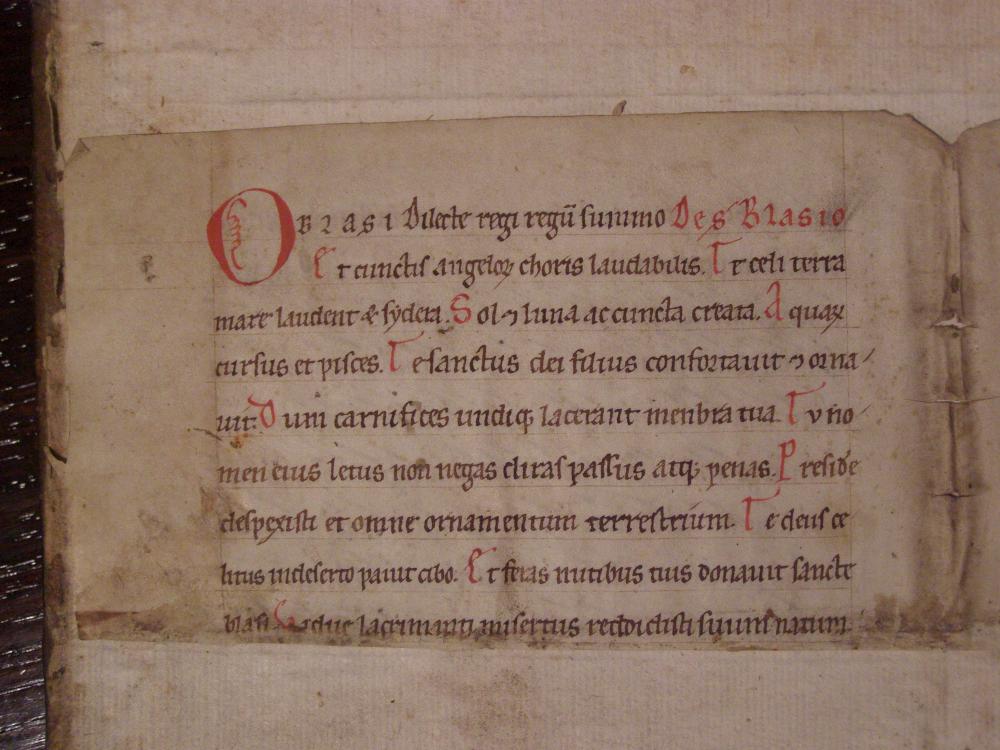 O BLASI Dilecte regi regū summo De s' Blasio
Et cunctis angeloꝝ choris laudabilis. Te celi terra
mare laudent & sydera. Sol ⁊ luna ac cuncta creata. Aquaꝝ
cursus et pisces. Te sanctus dei filius confortauit ⁊ orna
uit. Dum carnifices undiqꝫ lacerant menbra tua. Tu no
men eius letus non negas diras passus atqꝫ penas. Preside
despexisti et omne ornamentum terrestrium. Te deus ce
litus in deserto pauit cibo. Et feras nutibus tuis donauit sancte
blasi uidue lacrimanti misertus reddidisti suum natum